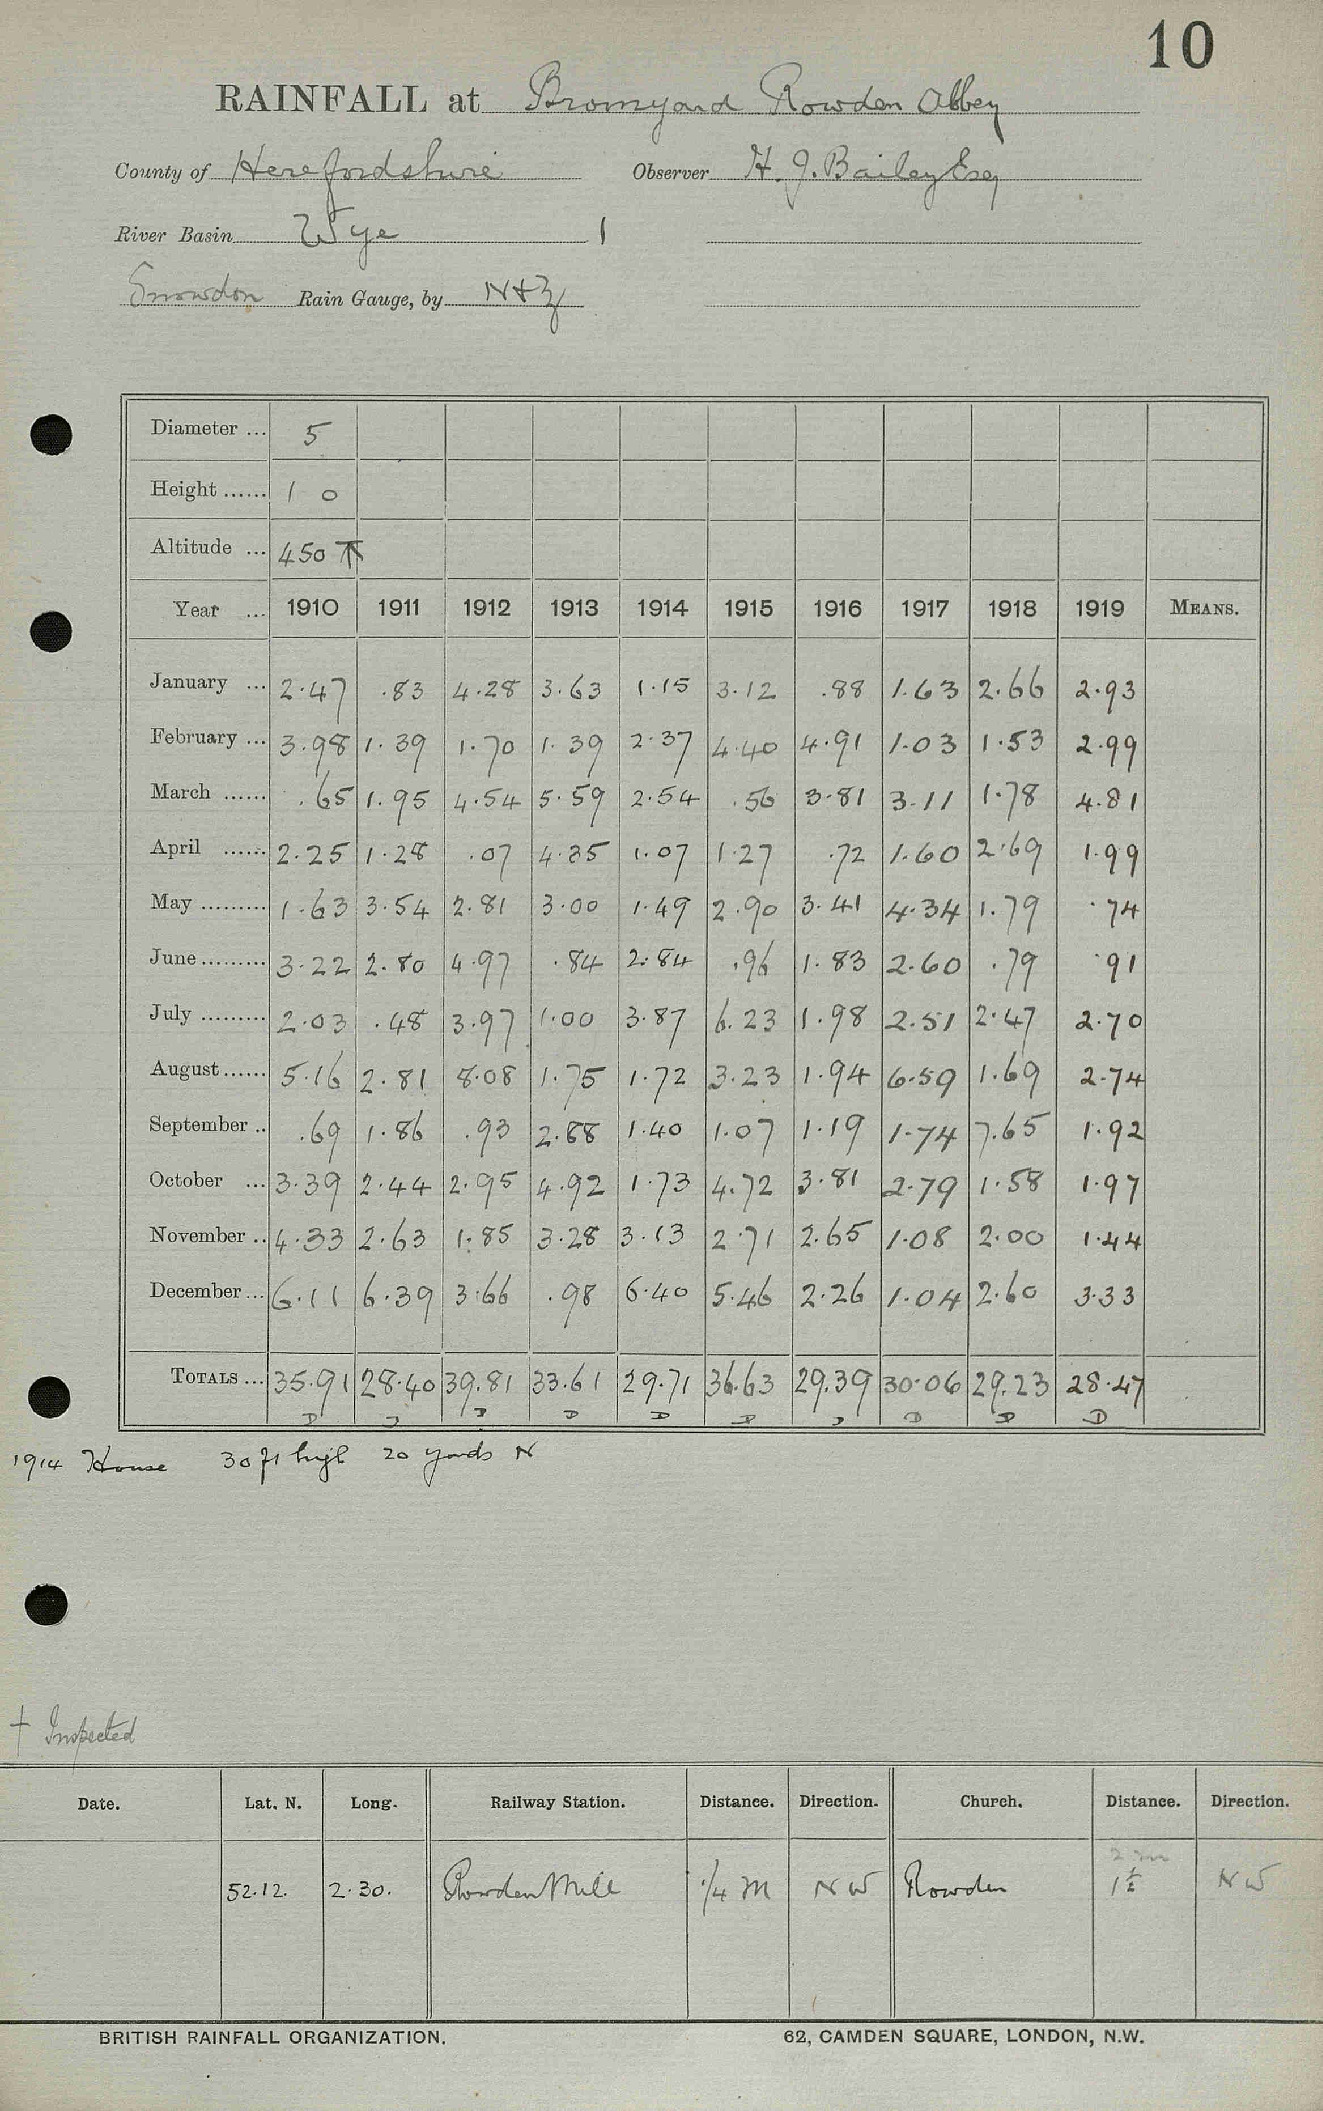 10
RAINFALL at Bromyard Rowden Abbey
County of Herefordshire Observer H. J. Bailey Esq
River Basin Wye 1
Snowdon Rain Gauge, by N & Z
Diameter ... 5
Height ...... 1 0
Altitude ... 450 T
Year ... 1910 1911 1912 1913 1914 1915 1916 1917 1918 1919 MEANS.
January ... 2.47 .83 4.28 3.63 1.15 3.12 .88 1.63 2.66 2.93
February ... 3.98 1.39 1.70 1.39 2.37 4.40 4.91 1.03 1.53 2.99
March ...... .65 1.95 4.54 5.59 2.54 .56 3.81 3.11 1.78 4.81
April ...... 2.25 1.28 .07 4.35 1.07 1.27 .72 1.60 2.69 1.99
May ......... 1.63 3.54 2.81 3.00 1.49 2.90 3.41 4.34 1.79 .74
June ......... 3.22 2.80 4.97 .84 2.84 .96 1.83 2.60 .79 .91
July ......... 2.03 .48 3.97 1.00 3.87 6.23 1.98 2.51 2.47 2.70
August ...... 5.16 2.81 8.08 1.75 1.72 3.23 1.94 6.59 1.69 2.74
September .. .69 1.86 .93 2.88 1.40 1.07 1.19 1.74 7.65 1.92
October ... 3.39 2.44 2.95 4.92 1.73 4.72 3.81 2.79 1.58 1.97
November .. 4.33 2.63 1.85 3.28 3.13 2.71 2.65 1.08 2.00 1.44
December ... 6.11 6.39 3.66 .98 6.40 5.46 2.26 1.04 2.60 3.33
TOTALS ... 35.91 28.40 39.81 33.61 29.71 36.63 29.39 30.06 29.23 28.47
D D D D D D D D D D
1914 House 30 ft high 20 yards N
† Inspected
Date. Lat. N. Long. Railway Station. Distance. Direction. Church. Distance. Direction.
2 m
52.12. 2.30. Rowden Mill 1/4 M N W Rowden 1½ N W
BRITISH RAINFALL ORGANIZATION. 62, CAMDEN SQUARE, LONDON, N.W.